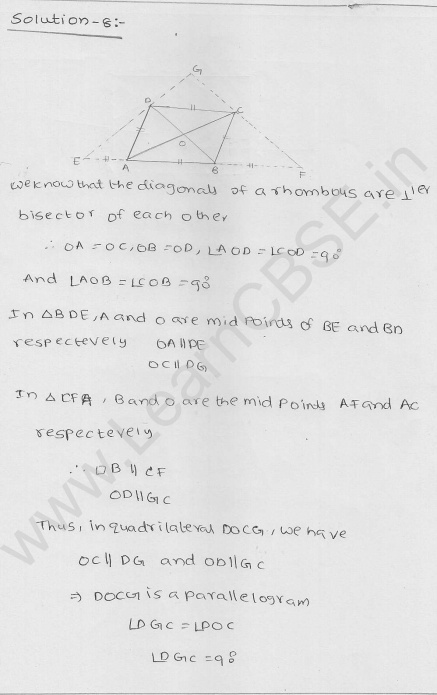 Solution-8:-
G
D
C
O
E
A
B
F
we know that the diagonals of a rhombous are ⊥ler
bisector of each other
∴ OA = OC, OB = OD, ∠AOD = ∠COD = 90°
And ∠AOB = ∠COB = 90°
In △BDE, A and O are mid points of BE and BD
respectevely OA || DE
OC || DG
In △CFA, B and O are the mid points AF and AC
respectevely
∴ OB || CF
OD || GC
Thus, in quadrilateral DOCG, we have
OC || DG and OD || GC
⇒ DOCG is a parallelogram
∠DGC = ∠DOC
∠DGC = 90°
www.LearnCBSE.in